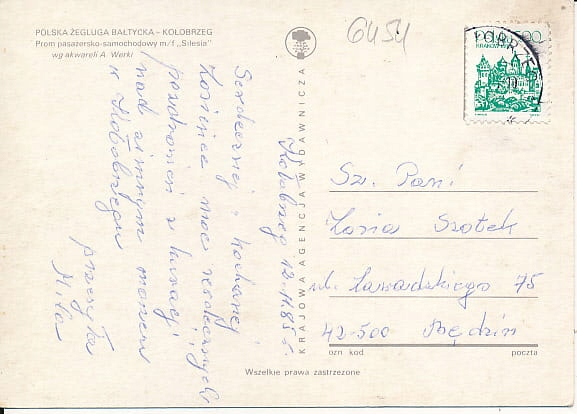 POLSKA ŻEGLUGA BAŁTYCKA – KOŁOBRZEG
Prom pasażersko-samochodowy m/f „Silesia"
wg akwareli A. Werki
6454
KRAKÓW
Kołobrzeg 12.11.85 r.
Serdecznej i kochanej
Zosieńce moc serdecznych
pozdrowień z kuracji
nad zimnym morzem
w Kołobrzegu
przesyła
Mila
KRAJOWA AGENCJA WYDAWNICZA
Sz. Pani
Zosia Szotek
ul. Zawadzkiego 75
42-500 Będzin
ozn kod poczta
Wszelkie prawa zastrzeżone